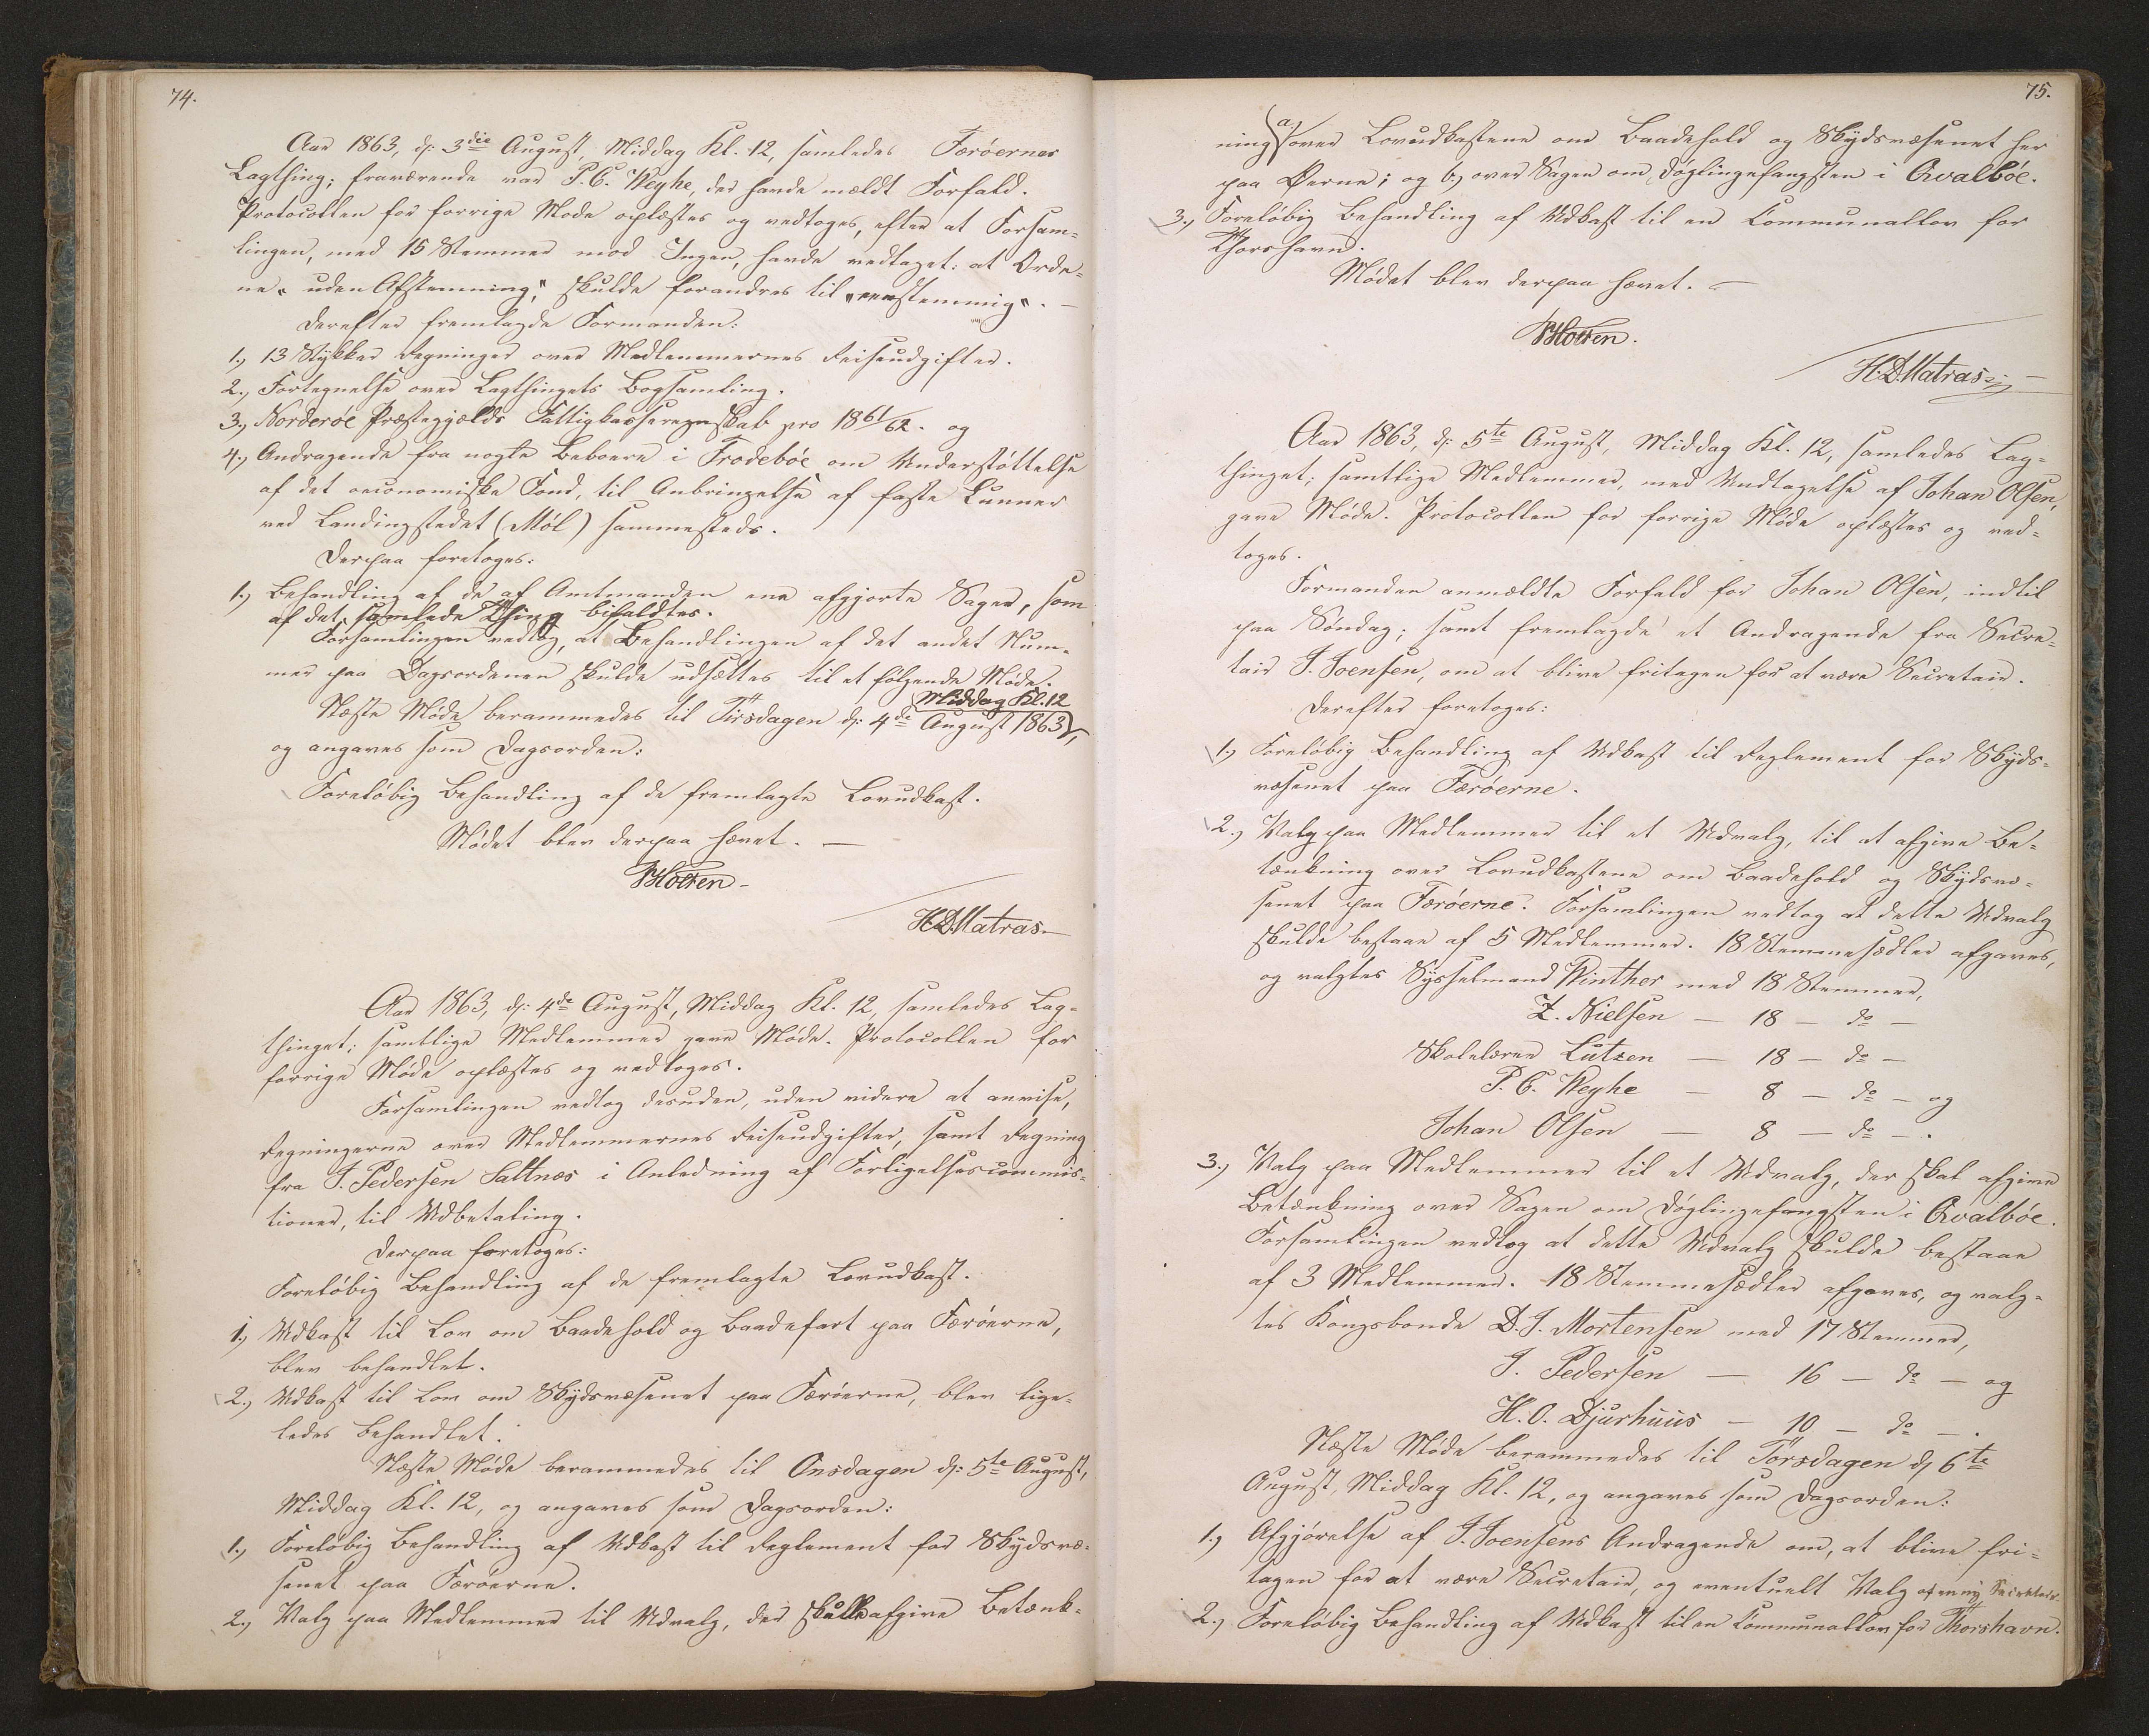 74.
Aar 1863, d: 3die August, Middag Kl. 12, samledes Færöernes
Lagthing; fraværende var P. C. Weyhe, der havde meldt Forfald.
Protocollen for forrige Møde oplæstes og vedtoges, efter at Forsam=
lingen, med 15 Stemmer mod Ingen, havde vedtaget: at Orde=
ne „uden Afstemning“, skulde forandres til „eenstemmig“. —
Derefter fremlagde Formanden:
1., 13 Stykker Regninger over Medlemmernes Reiseudgifter.
2., Fortegnelse over Lagthingets Bogsamling.
3., Norderöe Præstegjælds Fattigkasseregnskab pro 1861/62. og
4., Andragende fra nogle Beboere i Frodebóe om Understöttelse
af det oeconomiske Fond, til Anbringelse af faste Lunner
ved Landingstedet (Mól) sammesteds.
Derpaa foretoges:
1., Behandling af de af Amtmanden ene afgjorte Sager, som
af det samlede Thing bifaldtes.
Forsamlingen vedtog, at Behandlingen af det andet Num=
mer paa Dagsordenen skulde udsættes til et fölgende Møde.
Middag Kl. 12
Næste Møde berammedes til Tirsdagen d: 4de August 1863,
og angaves som Dagsorden:
Forelöbig Behandling af de fremlagte Lovudkast.
Mødet blev derpaa hævet. —
Holten
H. D. Matras
Aar 1863, d: 4de August, Middag Kl. 12, samledes Lag=
thinget; samtlige Medlemmer gave Møde. Protocollen for
forrige Møde oplæstes og vedtoges.
Forsamlingen vedtog desuden, uden videre at anvise,
Regningerne over Medlemmernes Reiseudgifter, samt Regning
fra J. Pedersen Saltnæs i Anledning af Forligelsescommis=
tioner, til Udbetaling.
Derpaa foretoges:
Forelöbig Behandling af de fremlagte Lovudkast.
1., Udkast til Lov om Baadehold og Baadefart paa Færöerne,
blev behandlet.
2., Udkast til Lov om Skydsvæsenet paa Færöerne, blev lige=
ledes behandlet.
Næste Møde berammedes til Onsdagen d: 5te August,
Middag Kl. 12, og angaves som Dagsorden:
1., Forelöbig Behandling af Udkast til Reglement for Skydsvæ=
senet paa Færöerne.
2., Valg paa Medlemmer til Udvalg, der skulle afgive Betænk=
75.
ning a.) over Lovudkastene om Baadehold og Skydsvæsenet her
paa Öerne; og b.) over Sagen om Döglingefangsten i Qvalböe.
3., Forelöbig Behandling af Udkast til en Communallov for
Thorshavn.
Mødet blev derpaa hævet. —
Holten.
H. D. Matras
Aar 1863, d: 5te August, Middag Kl. 12, samledes Lag=
thinget; samtlige Medlemmer, med Undtagelse af Johan Olsen,
gave Møde. Protocollen for forrige Møde oplæstes og ved=
toges.
Formanden anmeldte Forfald for Johan Olsen, indtil
paa Söndag; samt fremlagde et Andragende fra Secre=
tair J. Joensen, om at blive fritagen for at være Secretair.
Derefter foretoges:
1., Forelöbig Behandling af Udkast til Reglement for Skyds=
væsenet paa Færöerne.
2., Valg paa Medlemmer til et Udvalg, til at afgive Be=
tænkning over Lovudkastene om Baadehold og Skydsvæ=
senet paa Færöerne. Forsamlingen vedtog at dette Udvalg
skulde bestaae af 5 Medlemmer. 18 Stemmesedler afgaves,
og valgtes Sysselmand Winther med 18 Stemmer,
Z. Nielsen — 18 — do —
Skolelærer Lützen — 18 — do —
P. C. Weyhe — 8 — do — og
Johan Olsen — 8 — do — .
3., Valg paa Medlemmer til et Udvalg, der skal afgive
Betænkning over Sagen om Döglingefangsten i Qvalböe.
Forsamlingen vedtog at dette Udvalg skulde bestaae
af 3 Medlemmer. 18 Stemmesedler afgaves, og valg=
tes Kongsbonde D. J. Mortensen med 17 Stemmer,
J. Pedersen — 16 — do — og
H. O. Djurhuus — 10 — do — .
Næste Møde berammedes til Torsdagen d: 6te
August, Middag Kl. 12, og angaves som Dagsorden:
1., Afgjörelse af J. Joensens Andragende om, at blive fri=
tagen for at være Secretair, og eventuelt Valg af en ny Secretair.
2., Forelöbig Behandling af Udkast til en Communallov for Thorshavn.